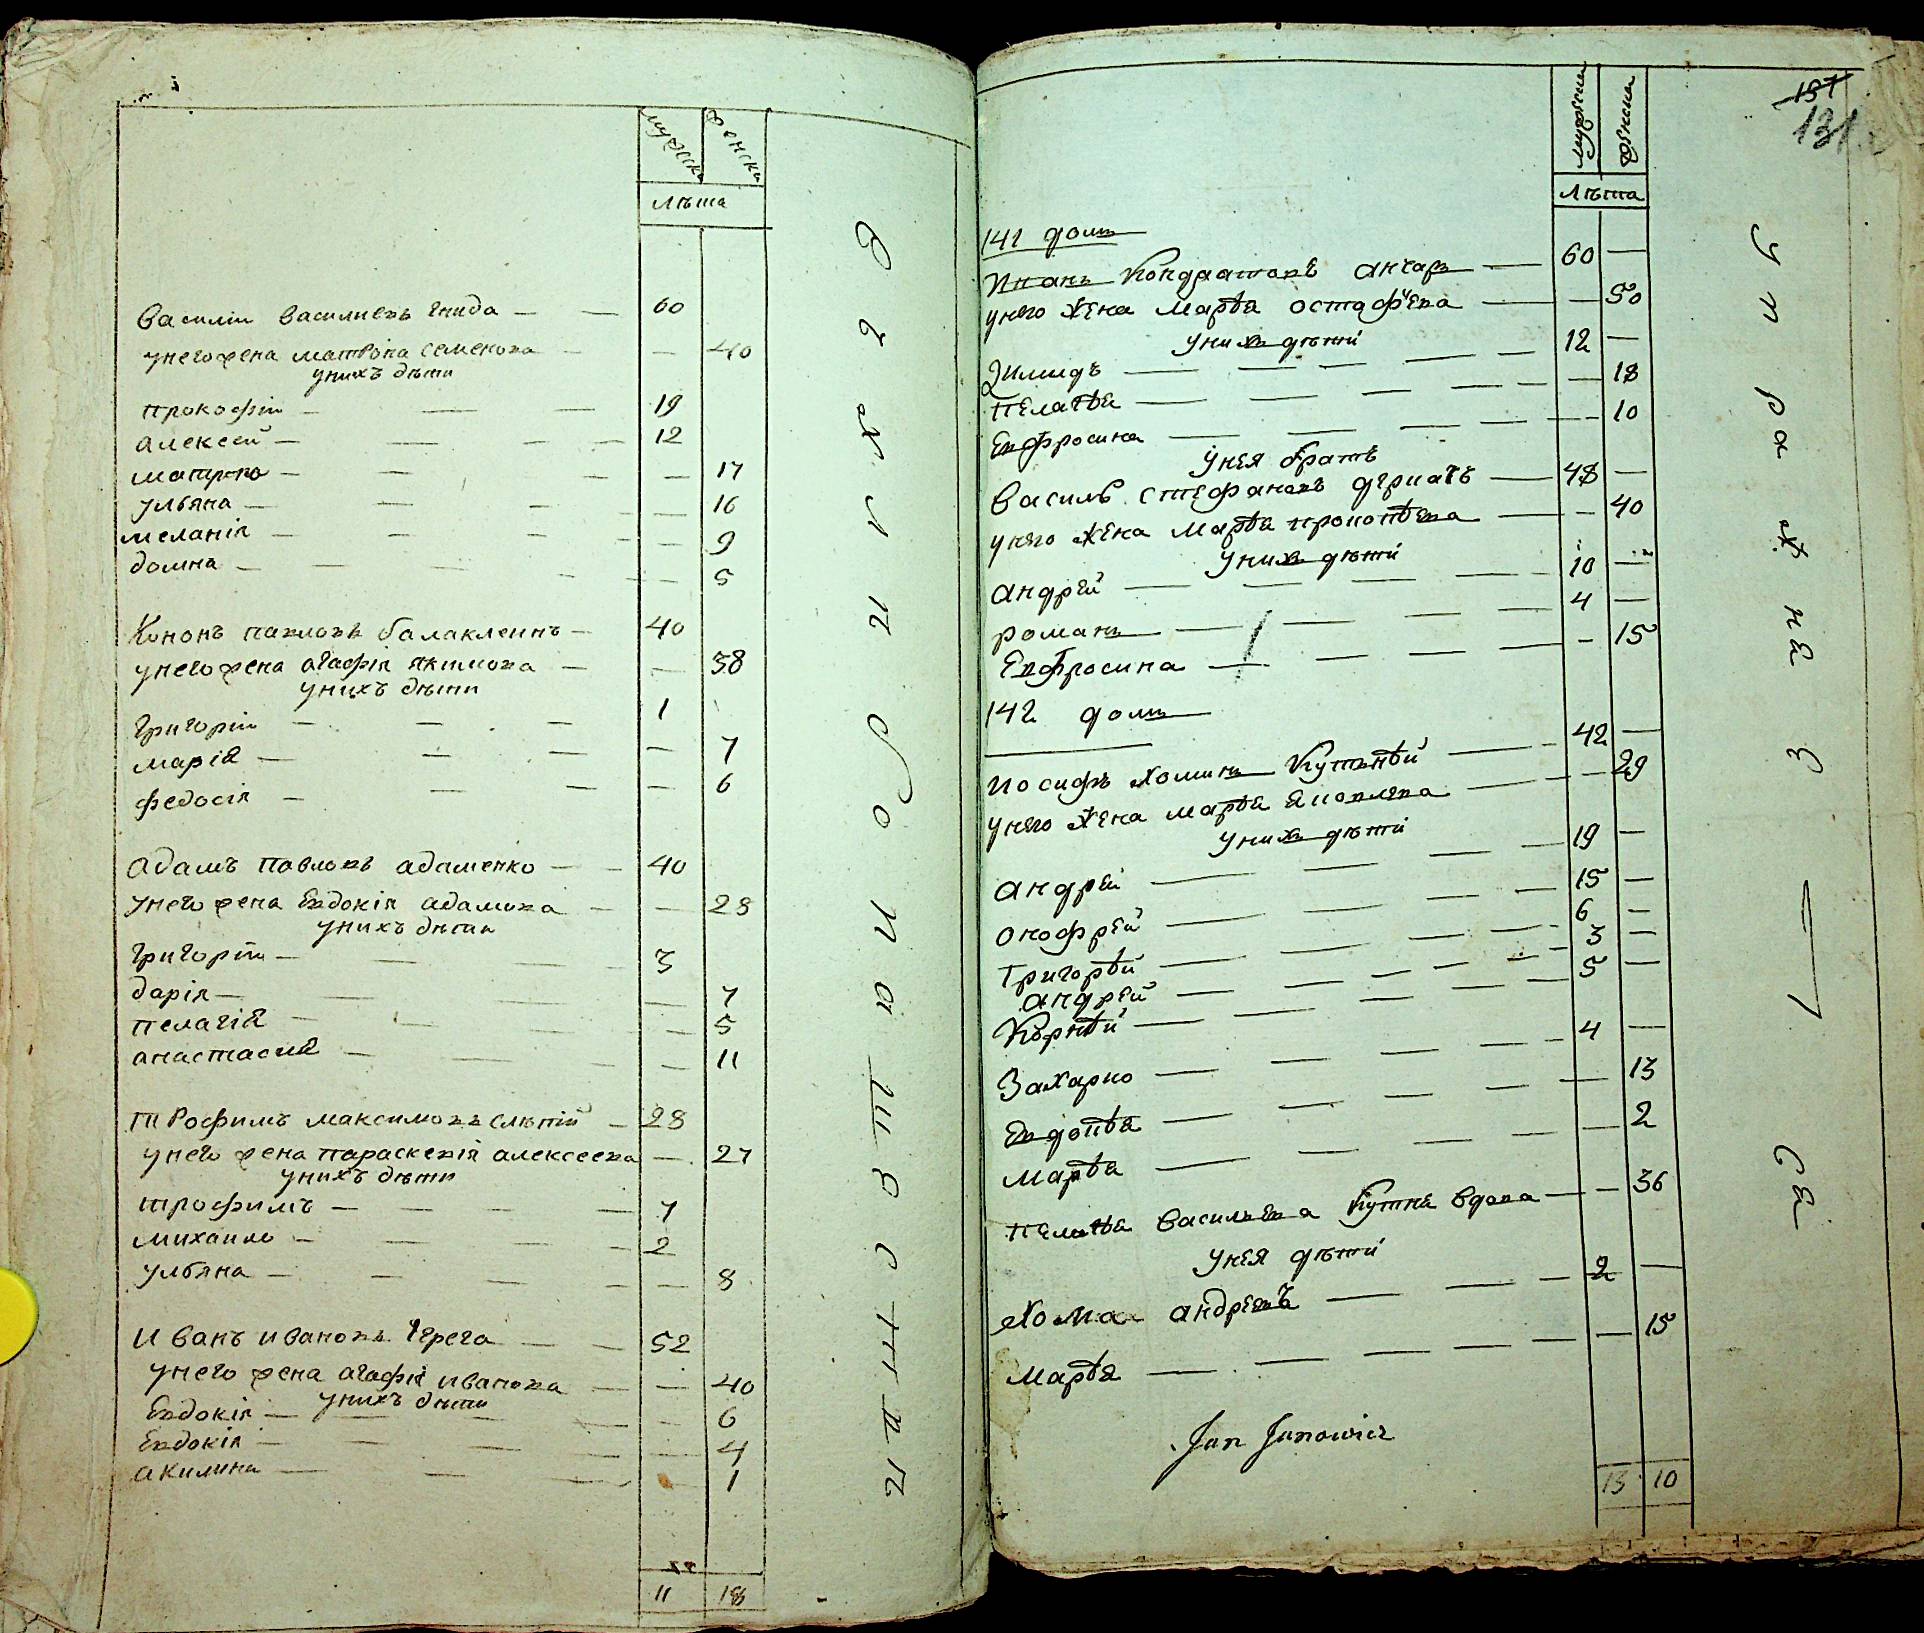 мужеска женска
лѣта
Василіи Василиевъ Гнида — — 60
унего жена матрона семенова — — 40
унихъ дѣти
прокофіи — — — 19
алексѣй — — — — 12
матрона — — — — 17
ульяна — — — — 16
меланія — — — — 9
домна — — — — 5
Кононъ павловъ балаклеинъ — 40
унего жена агафія якимова — — 38
унихъ дѣти
григоріи — — — 1
марія — — — — 7
федосія — — — — 6
адамъ павловъ адаменко — — 40
унего жена Евдокія адамова — — 28
унихъ дѣти
григорій — — — — 3
дарія — — — — 7
пелагія — — — — 5
анастасия — — — 11
трофимъ максимовъ слѣпій — 28
унего жена параскевія алексеева — 27
унихъ дѣти
трофимъ — — — — — 7
михаило — — — — 2
ульяна — — — — — 8
Иванъ ивановъ Чгрега — — 52
унего жена агафія иванова — — 40
унихъ дѣти
Евдокія — — — — — 6
Евдокія — — — — — 4
акилина — — — — 1
11 18
131
мужеска женска
лѣта
141 домъ
Иванъ Кондратовъ анчаръ — 60 —
унего жена марѣя остафѣева — — 50
унихъ дѣти
— — — — 12 —
пелагѣя — — — — — 18
Евфросина — — — — — 10
унея братъ
Василь стефановъ дергачъ — 48 —
унего жена марѣя прокопѣева — — 40
унихъ дѣти
андрѣй — — — — 10 —
романъ — — — — 4 —
Евфросина — — — — — 15
142 домъ
иосифъ хоминъ Кутнѣй — — 42 —
унего жена марѣя яковлева — — — 29
унихъ дѣти
андрѣй — — — — 19 —
онофрѣй — — — — 15 —
григорѣй — — — — 6 —
андрѣй — — — — 3 —
Корнѣй — — — — 5 —
Захарко — — — — 4 —
Евдокѣя — — — — — 13
марѣя — — — — — 2
пелагѣя васильева Кутня вдова — — 36
унея дѣти
Хома андрѣевъ — — — 2 —
марѣя — — — — — 15
Jan Janowicz
13 10